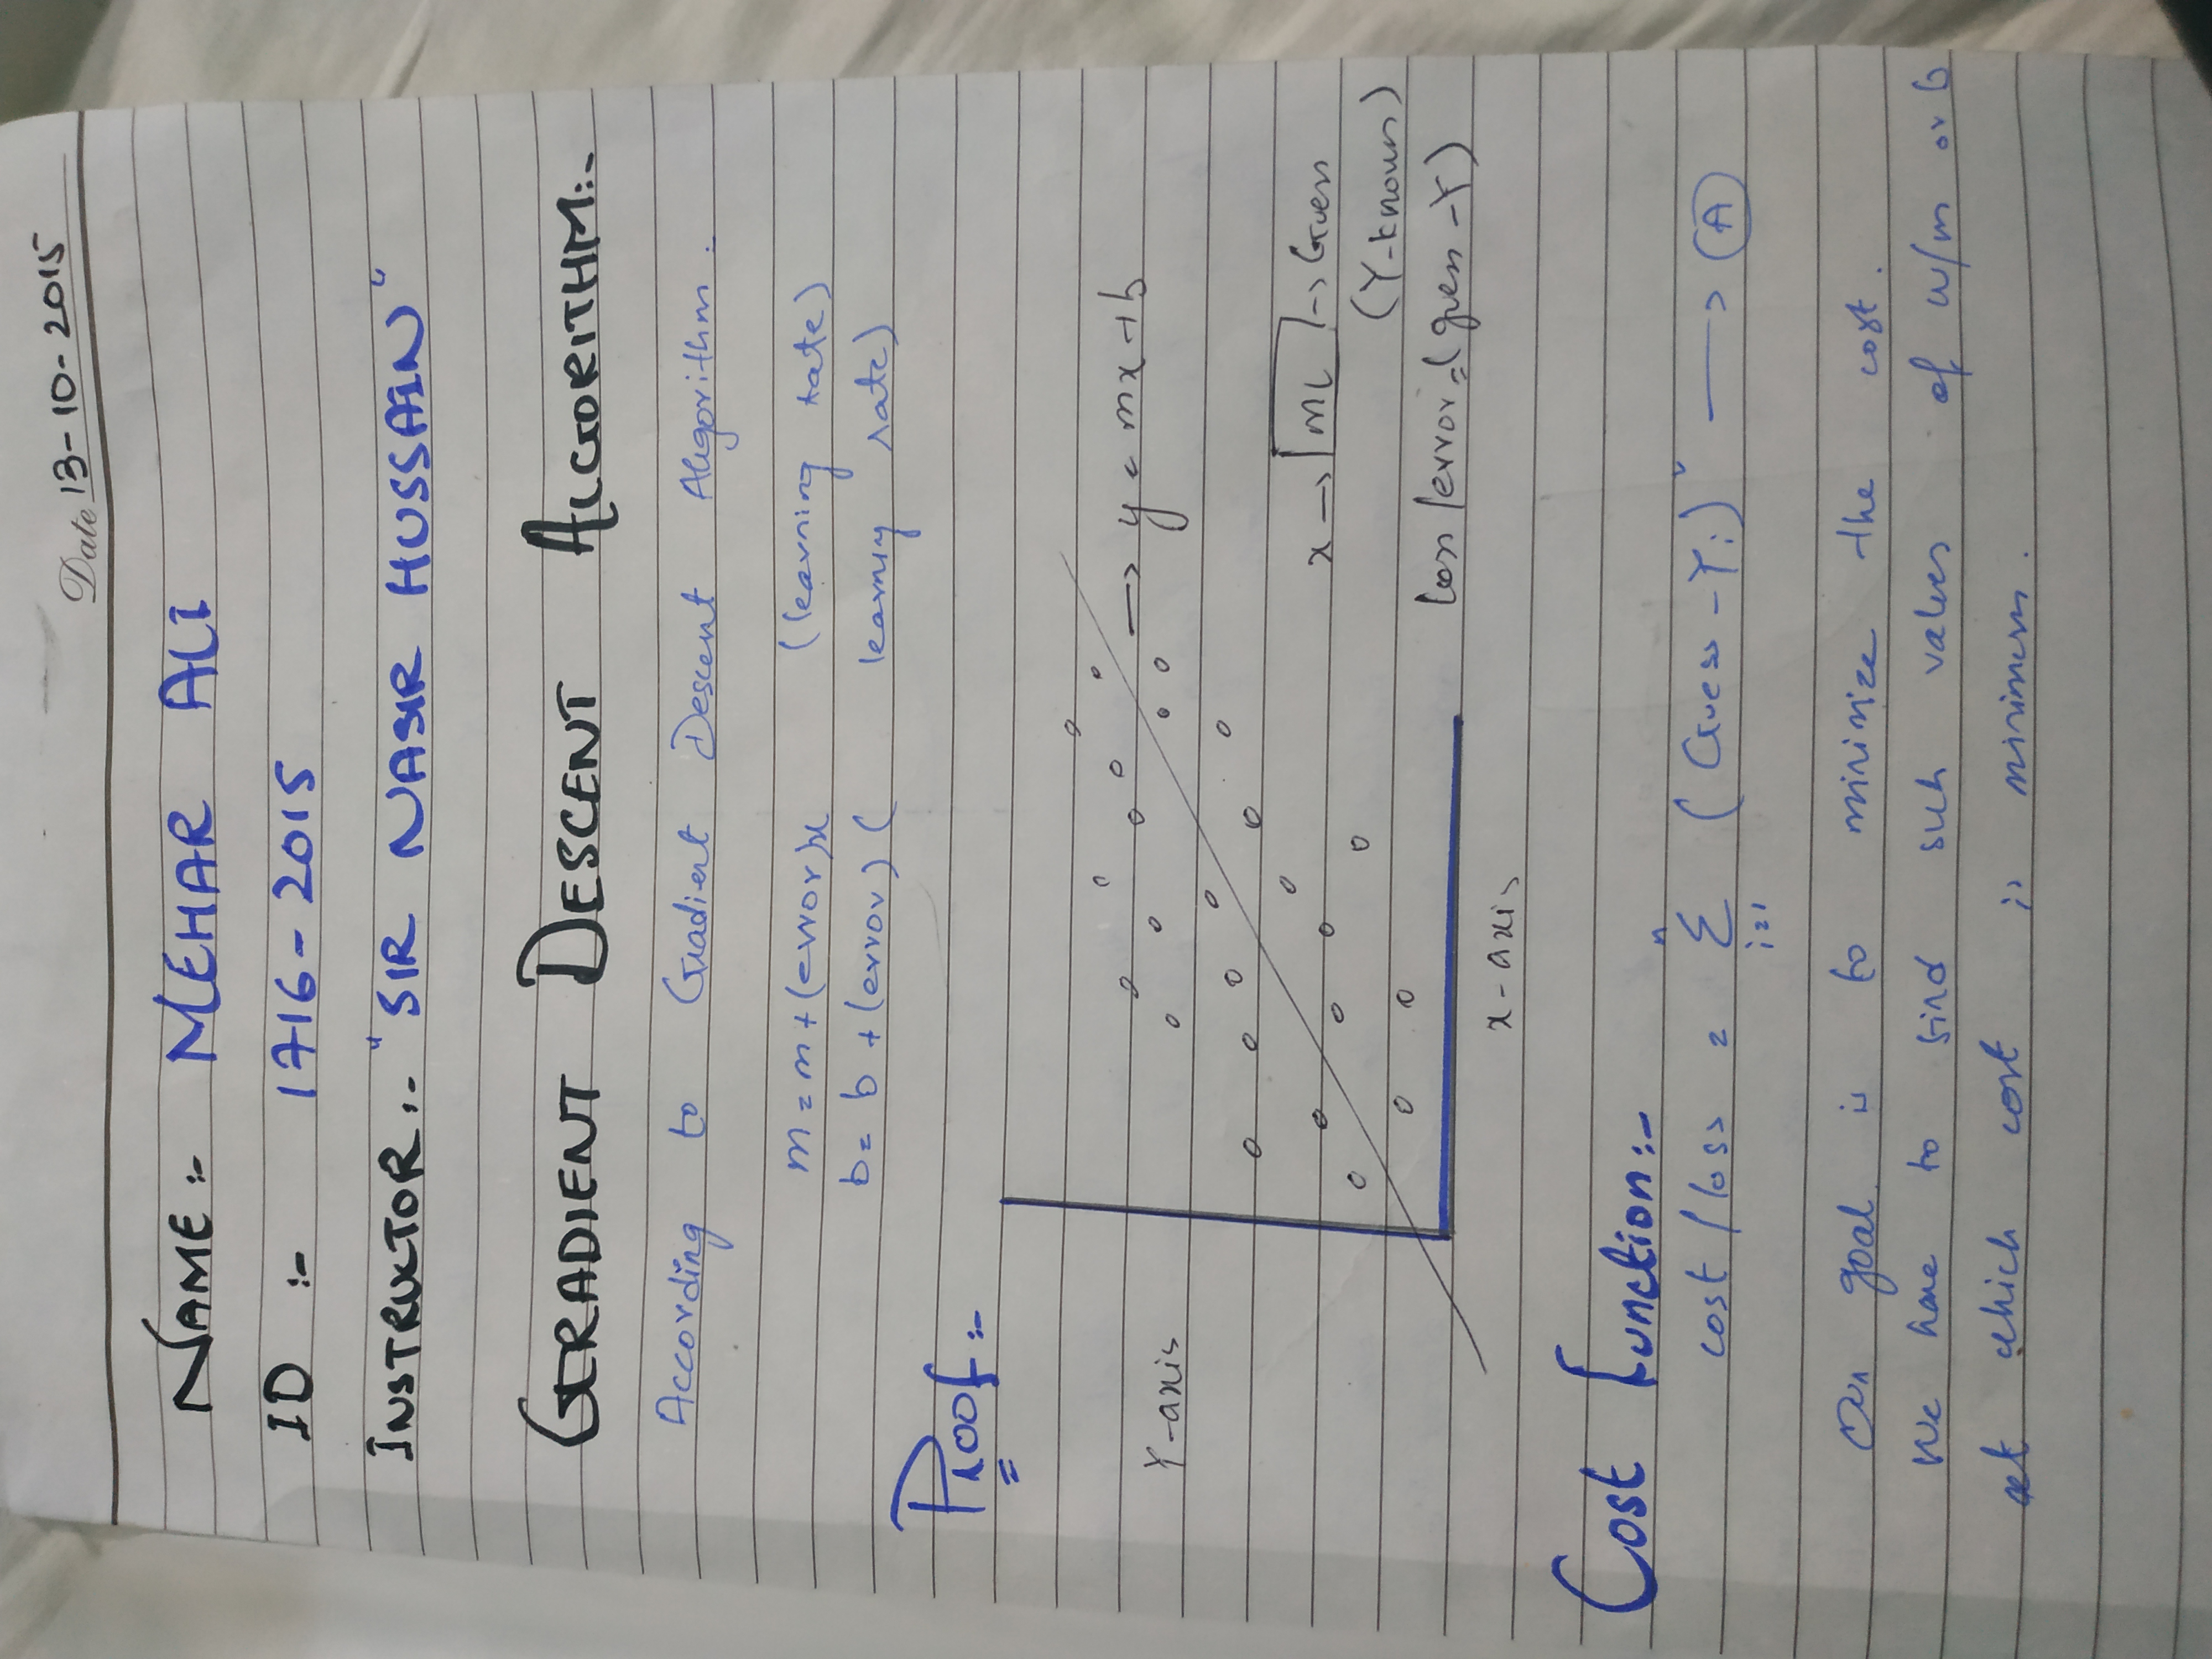 Date 13-10-2015
NAME:- MEHAR ALI
ID :- 1716-2015
INSTRUCTOR:- "SIR NASIR HUSSAIN"
GRADIENT DESCENT ALGORITHM:-
According to Gradient Descent Algorithm.
m = m + (error)x (learning rate)
b = b + (error) ( learning rate)
Proof:-
Y-axis
→ y = mx+b
x → ML → Guess
(Y-known)
loss/error = (guess - Y)
x-axis
Cost function:-
cost/loss = n Σ i=1 (Guess - Yi)² → A
Our goal is to minimize the cost.
We have to find such values of w/m or b
at which cost is minimum.